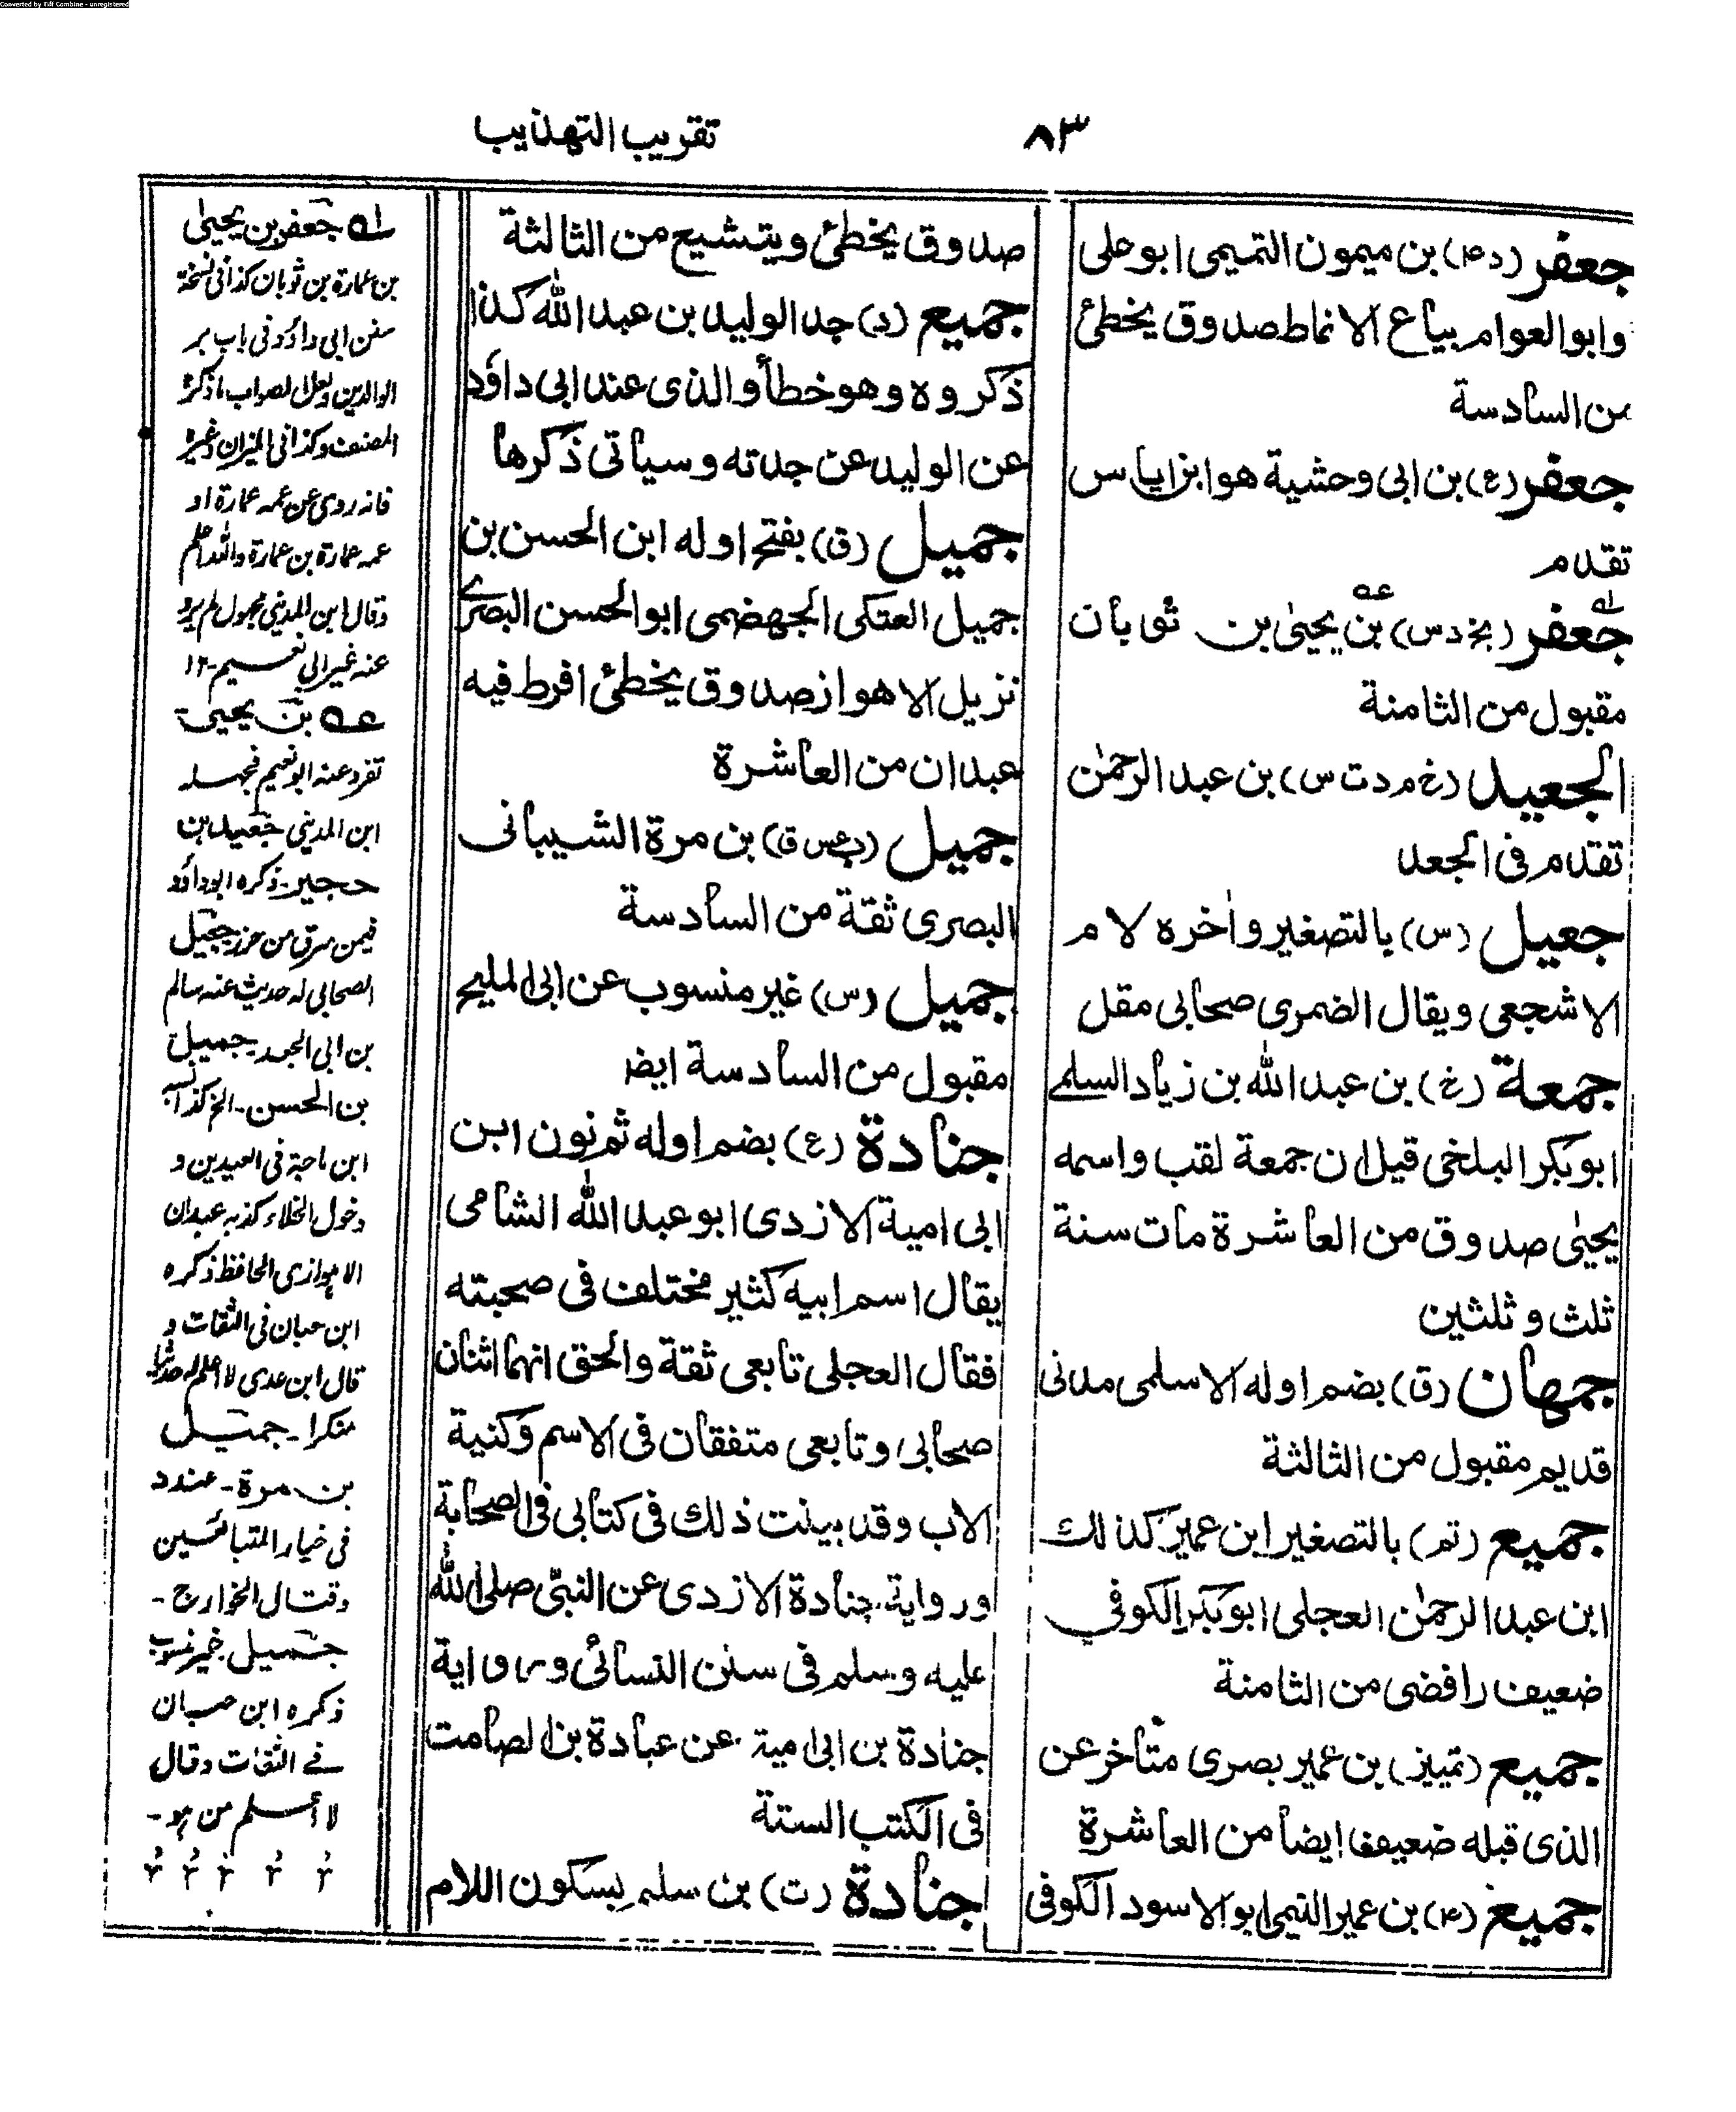 Converted by Tiff Combine - unregistered
٨٣
تقريب التهذيب
جعفر (د٤) بن ميمون التميمى ابو على
وابو العوام بياع الانماط صدوق يخطئ
من السادسة
جعفر (ع) بن ابى وحشية هو ابن اياس
تقدم
جعفر (بخ د س) بن يحيىٰ بن ثوبان
مقبول من الثامنة
الجعيد (خ م د ت س) بن عبد الرحمٰن
تقدم فى الجعد
جعيل (س) بالتصغير واٰخره لام
الاشجعى ويقال الضمرى صحابى مقل
جمعة (خ) بن عبد الله بن زياد السلمى
ابو بكر البلخى قيل ان جمعة لقب واسمه
يحيىٰ صدوق من العاشرة مات سنة
ثلث وثلثين
جمهان (ق) بضم اوله الاسلمى مدنى
قديم مقبول من الثالثة
جميع (تم) بالتصغير ابن عمير كذلك
ابن عبد الرحمٰن العجلى ابو بكر الكوفى
ضعيف رافضى من الثامنة
جميع (تمييز) بن عمير بصرى متأخر عن
الذى قبله ضعيف ايضا من العاشرة
جميع (٤) بن عمير التيمى ابو الاسود الكوفى
صدوق يخطئ ويتشيع من الثالثة
جميع (د) جد الوليد بن عبد الله كذا
ذكروه وهو خطأ والذى عند ابى داؤد
عن الوليد عن جدته وسياتى ذكرها
جميل (ق) بفتح اوله ابن الحسن بن
جميل العتكى الجهضمى ابو الحسن البصرے
نزيل الاهواز صدوق يخطئ افرط فيه
عبدان من العاشرة
جميل (د عس ق) بن مرة الشيبانى
البصرى ثقة من السادسة
جميل (س) غير منسوب عن ابى المليح
مقبول من السادسة ايضا
جنادة (ع) بضم اوله ثم نون ابن
ابى امية الازدى ابو عبد الله الشامى
يقال اسم ابيه كثير مختلف فى صحبته
فقال العجلى تابعى ثقة والحق انهما اثنان
صحابى وتابعى متفقان فى الاسم وكنية
الاب وقد بينت ذلك فى كتابى فى الصحابة
ورواية جنادة الازدى عن النبى صلى الله
عليه وسلم فى سنن النسائى ورواية
جنادة بن ابى امية عن عبادة بن الصامت
فى الكتب الستة
جنادة (ت) بن سلم بسكون اللام
له جعفر بن يحيىٰ
بن عمارة بن ثوبان كذا فى نسخة
سنن ابى داؤد فى باب بر
الوالدين ولعل الصواب ما ذكره
المصنف وكذا فى الميزان وغيره
فانه روى عن عمه عمارة او
عمه عمارة بن عمارة والله اعلم
وقال ابن المدينى مجهول لم يرو
عنه غير ابى نعيم ۔١٢
عه بن يحيىٰ
تفرد عنه ابو نعيم فجهله
ابن المدينى جعيد بن
حجير۔ ذكره ابو داؤد
فيمن سرق من حرز جعيل
الصحابى له حديث عنه سالم
بن ابى الجعد۔ جميل
بن الحسن۔ الخ كذا
ابن ماجة فى العيدين و
دخول الخلاء كذبه عبدان
الاهوازى الحافظ ذكره
ابن حبان فى الثقات و
قال ابن عدى لا اعلم له حديثا
منكرا۔ جميل
بن مرة۔ عنده
فى خيار المتبائعين
وقتال الخوارج۔
جميل غير منسوب
ذكره ابن حبان
فے الثقات وقال
لا اعلم من هو۔